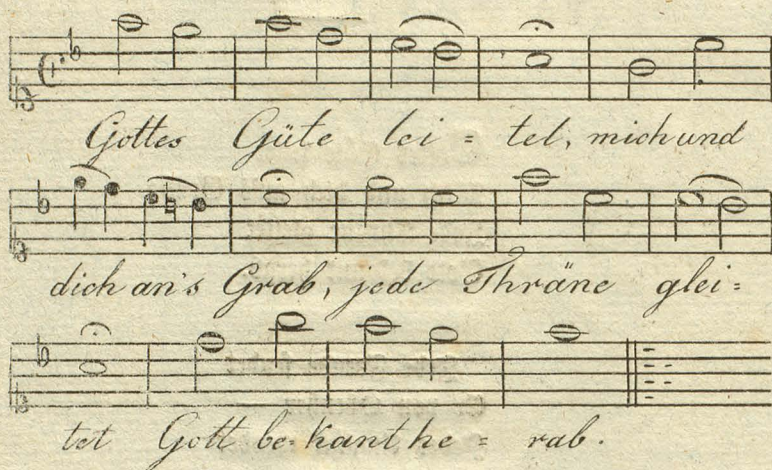 Gottes Güte lei = tet, mich und
dich an's Grab, jede Thräne glei =
tet Gott be-kant he = rab.